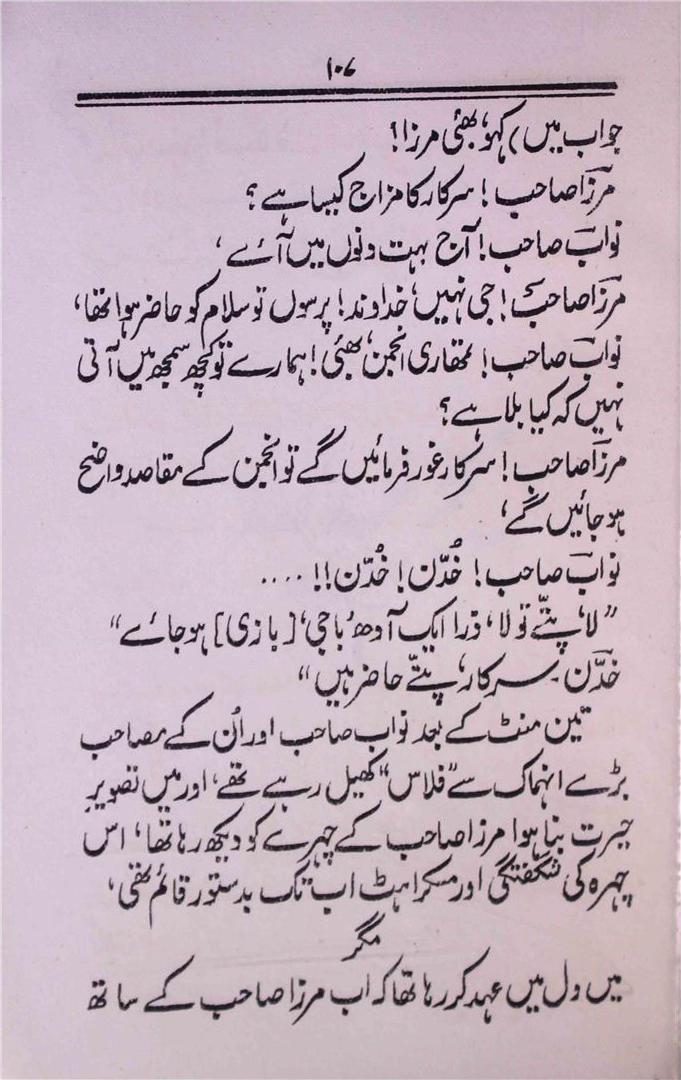 ۱۰۷
جواب میں) کہو، بھئی مرزا؟
مرزا صاحب! سرکار کا مزاج کیسا ہے؟
نواب صاحب! آج بہت دنوں میں آئے،
مرزا صاحب! جی نہیں، خداوند! پرسوں تو سلام کو حاضر ہوا تھا،
نواب صاحب! تمھاری انجمن، بھئی! ہمارے تو کچھ سمجھ میں آتی
نہیں کہ کیا بلا ہے؟
مرزا صاحب! سرکار غور فرمائیں گے تو انجمن کے مقاصد واضح
ہو جائیں گے،
نواب صاحب! خُدّن! خُدّن!! ....
”لا، پتّے تو لا، ذرا ایک آدھ ’باجی‘ [بازی] ہو جائے“
خدّن۔ سرکار، پتّے حاضر ہیں“
تین منٹ کے بعد نواب صاحب اور اُن کے مصاحب
بڑے انہماک سے ”فلاس“ کھیل رہے تھے، اور میں تصویرِ
حیرت بنا ہوا مرزا صاحب کے چہرے کو دیکھ رہا تھا، اس
چہرہ کی شگفتگی اور مسکراہٹ اب تک بدستور قائم تھی،
مگر
میں دل میں عہد کر رہا تھا کہ اب مرزا صاحب کے ساتھ